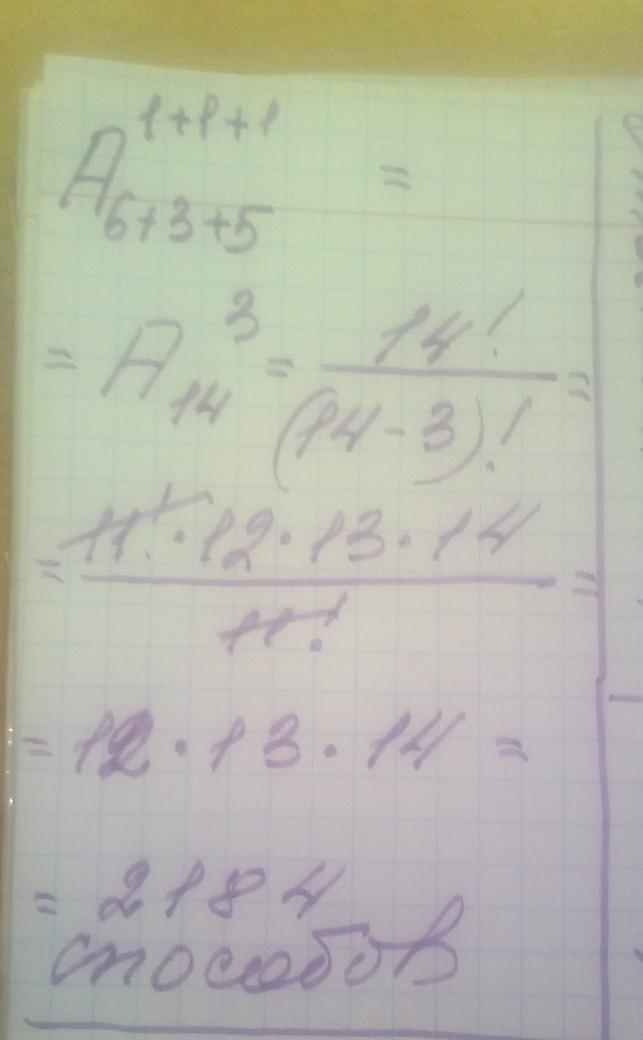 A₆₊₃₊₅¹⁺¹⁺¹ =
= A₁₄³ = 14! / (14-3)! =
= 11! · 12 · 13 · 14 / 11! =
= 12 · 13 · 14 =
= 2184
способов